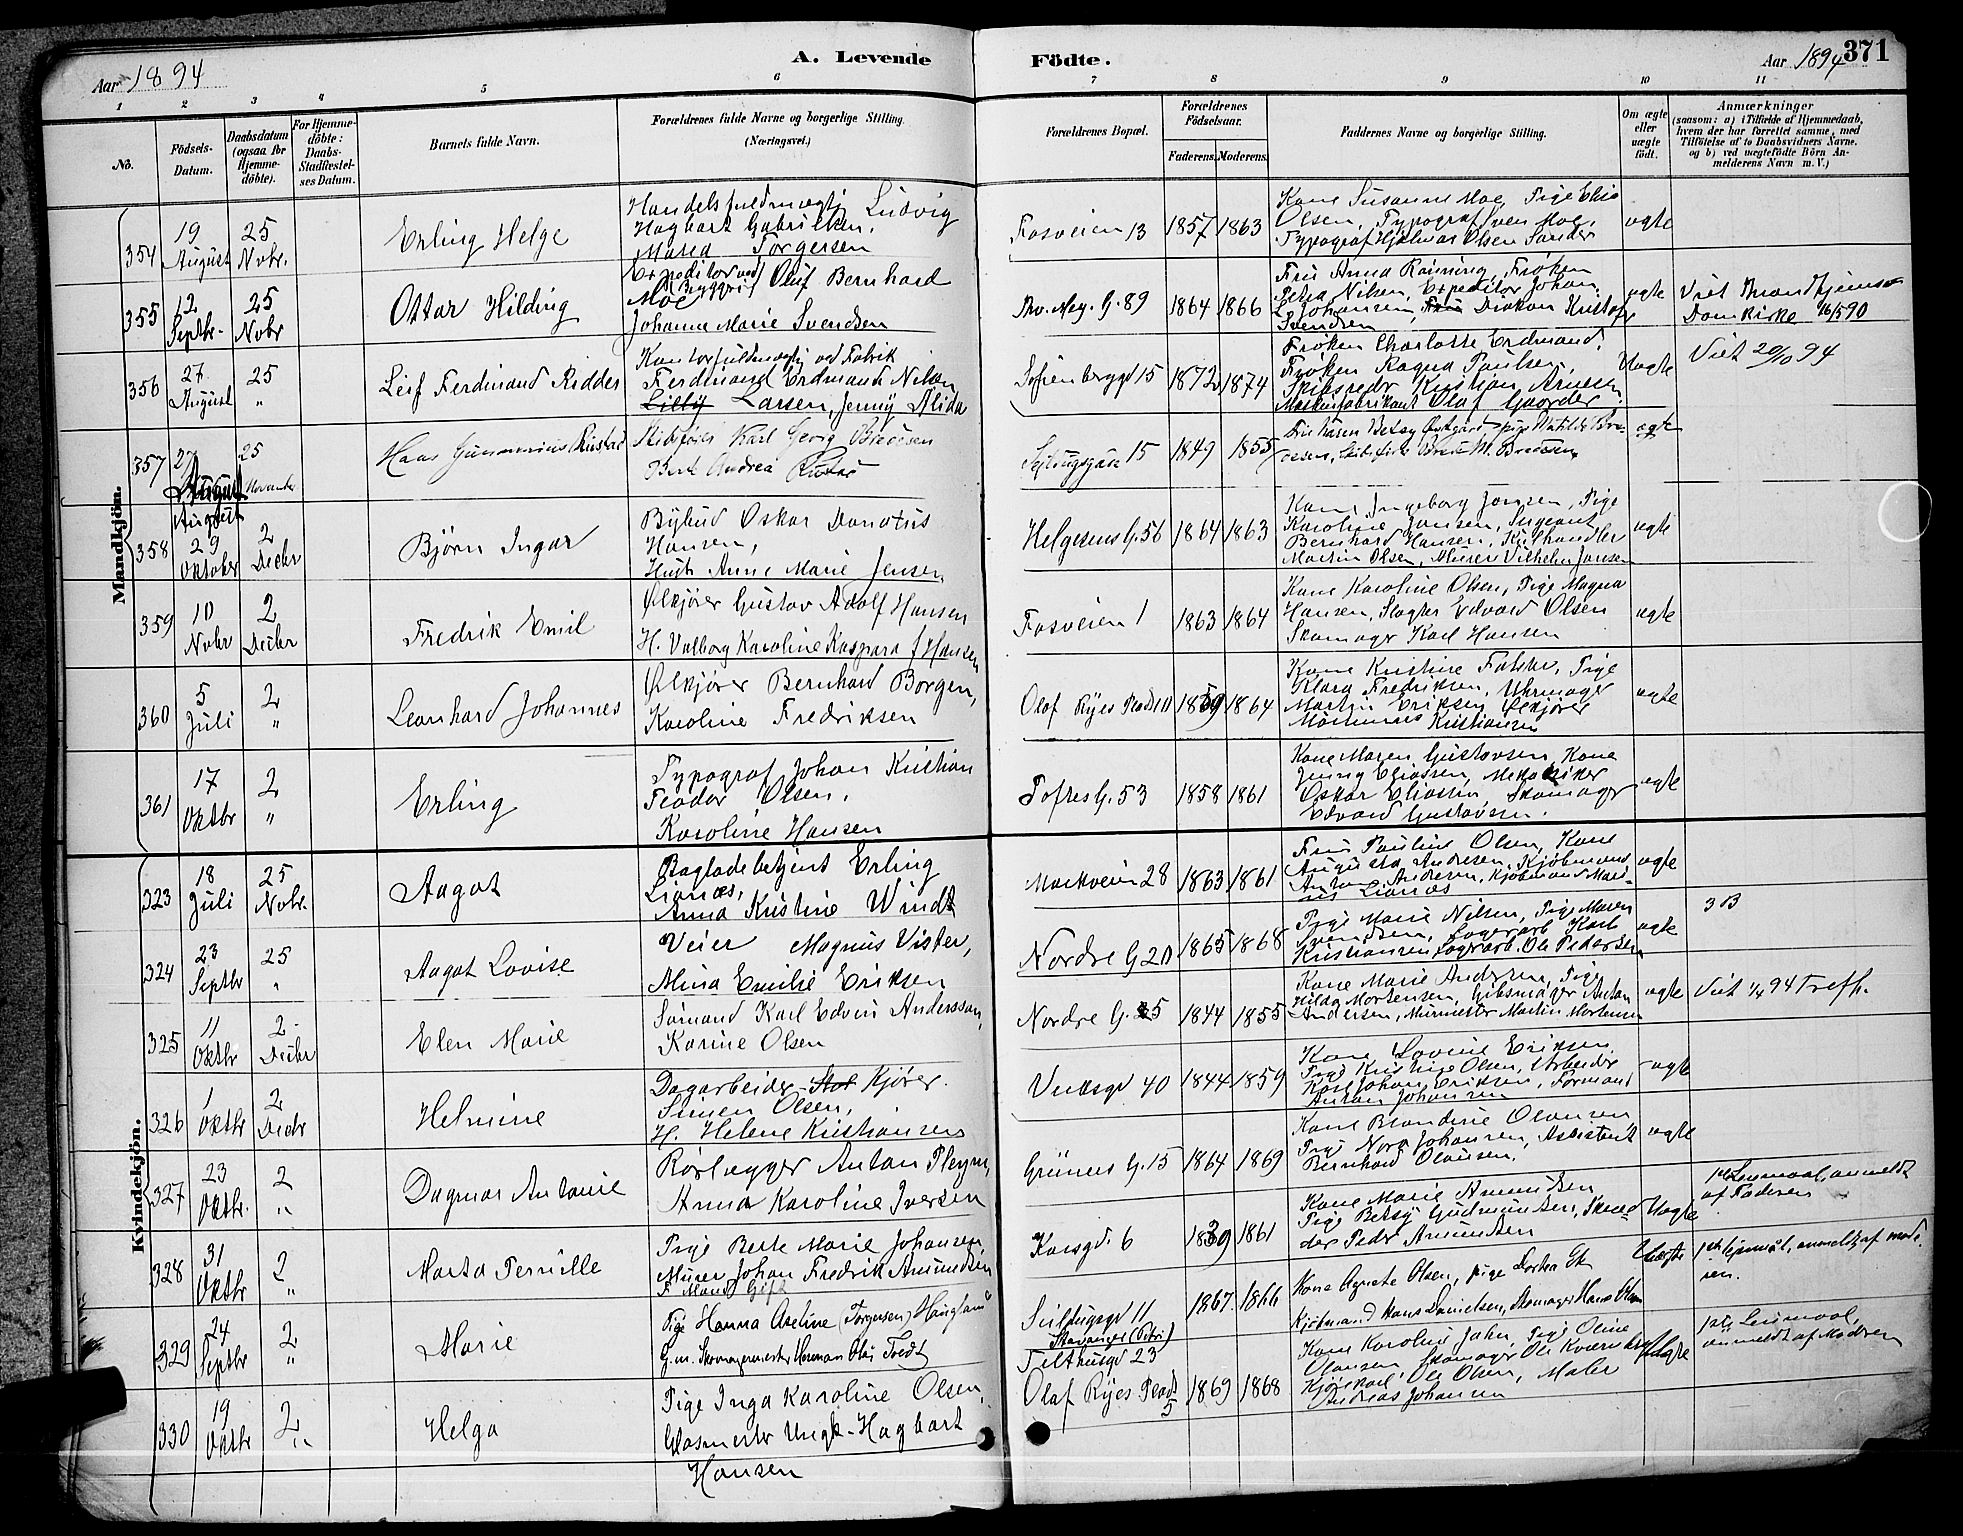 Aar 1894
A. Levende
Födte.
Aar 1894
371
1 2 3 4 5 6 7 8 9 10 11
No.
Födsels-Datum.
Daabsdatum (ogsaa for Hjemme-döbte).
For Hjemme-döbte: Daabs-Stadfæstel-ses Datum.
Barnets fulde Navn.
Forældrenes fulde Navne og borgerlige Stilling.
(Næringsvei.)
Forældrenes Bopæl.
Forældrenes Födselsaar.
Faderens. Moderens.
Faddernes Navne og borgerlige Stilling.
Om ægte eller uægte födt.
Anmærkninger
(saasom: a) i Tilfælde af Hjemmedaab,
hvem der har forrettet samme, med
Tilföielse af to Daabsvidners Navne.
og b) ved uægtefödte Börn An-
melderens Navn m. V.)
Mandkjön.
354 19 August 25 Novbr. Erling Helge
Handelsfuldmægtig Ludvig
Hagbart Gabrielsen,
Maria Torgersen
Fosveien 13 1857 1863
Kone Susanne Moe, Pige Elise
Olsen, Typograf Sven Moe,
Typograf Hjalmar Olsen Sander
ægte
355 12 Septbr. 25 Novbr Ottar Hilding
Expeditör ved Bryggeri Oluf Bernhard
Moe
Johanne Marie Svendsen
Thv. Mey. G. 89 1864 1866
Fru Anna Rönning, Fröken
Petra Nilsen, Expeditör Johan
L. Johansen, Diakon Kristofer
Svendsen
ægte
Viet Throndhjems
Domkirke 16/5 90
356 27 August 25 " Leif Ferdinand Ridder
Kontorfuldmægtig ved Fabrik
Ferdinand Erdmand Nilsen
Lilly Larsen, Jenny Alida
Sofienberggd 15 1872 1874
Fröken Charlotte Erdmand,
Fröken Ragna Paulsen,
Skibsreder Kristian Arnesen
Maskinfabrikant Olaf Gaarder
Uægte
Viet 20/10 94
357 27 August 25 November Hans Gunnerius Rustad
Skibsförer Karl Georg Bredesen
Berte Andrea Rustad
15 1849 1855
ægte
358 August 29 Oktober 2 Decbr Björn Ingar
Bybud Oskar Donatus
Hansen,
Hust. Anne Marie Jensen
Helgesens G. 56 1864 1863
Kone Ingeborg Jonsen, Pige
Karoline Jansen, Sergeant
Bernhard Hansen, Kulhandler
Martin Olsen, Murer Vilhelm Jansen
ægte
359 10 Novbr 2 Decbr Fredrik Emil
Ölkjörer Gustav Adolf Hansen
H. Valborg Karoline Kaspara f Hansen
Fosveien 1 1863 1864
Kone Karoline Olsen, Pige Magna
Hansen, Slagter Edvard Olsen
Skomager Karl Hansen
ægte
360 5 Juli 2 " Leonhard Johannes
Ölkjörer Bernhard Borgen,
Karoline Fredriksen
Olaf Ryes Plads 11 1859 1864
Kone Kristine Falske, Pige
Klara Fredriksen, Uhrmager
Martin Eriksen, Ölkjörer
Kristiansen
ægte
361 17 Oktbr 2 " Erling
Typograf Johan Kristian
Teodor Olsen,
Karoline Hansen
Toftes G. 53 1858 1861
Kone Maren Gustavsen, Kone
Jenny Eliassen, Mekaniker
Oskar Eliassen, Skomager
Edvard Gustavsen.
ægte
Kvindekjön.
323 18 Juli 25 Novbr. Aagot
Baglodsbetjent Erling
Lionæs,
Anna Kristine Windt
Markveien 28 1863 1861
Fru Pauline Olsen, Kone
Augusta Andresen, Kjöbmand
Anton Andersen, Kjöbmand Mari-
us Lionæs
ægte
324 23 Septbr 25 " Aagot Lovise
Veier Magnus Vister,
Alma Emilie Eriksen
Nordre G 20 1865 1868
Pige Marie Nilsen, Pige Maren
Svendsen, Lagerarb Karl
Kristiansen, Lagerarb. Ole Pedersen
ægte
3 B
325 11 Oktbr 2 Decbr Elen Marie
Sömand Karl Edvin Andersson,
Karine Olsen
Nordre G. 25 1844 1855
Kone Marie Andersen, Pige
Hilda Mortensen, Gibsmager Anton
Andersen, Murmester Martin Mortensen
ægte
Viet 1/4 94 Trefh.
326 1 Oktbr 2 Decbr Helmine
Dagarbeider Kjörer.
Simen Olsen,
H. Helene Kristiansen
40 1844 1859
Kone Lovise Eriksen
Pige Kristine Olsen, Arbeider
Karl Johan Eriksen, Formand
Anton Johansen
ægte
327 23 Oktbr. 2 " Dagmar Antonie
Rörlægger Anton Pleym,
Anna Karoline Iversen
Grüners G. 15 1864 1869
Kone Blandine Olausen
Pige Nora Johansen, Assistent
Bernhard Olausen.
ægte
328 31 Oktbr 2 " Marta Pernille
Pige Berte Marie Johansen,
Murer Johan Fredrik Amundsen
F Mand Gift
Korsgd. 6 1839 1861
Kone Marie Amundsen
Pige Betsy Gudmundsen, Skræd-
der Peder Amundsen
Uægte
1ste Leiermaal, anmeldt
af Faderen
329 24 Septbr 2 " Marie
Pige Hanna Aseline (Torgersen) Haugland
G.m. Skomagermester Herman Olai Tredt
11
Stavanger (Petri)
Tilthusgd 23
1867 1866
Kone Agnete Olsen, Pige Dorthea
Kjöbmand Hans Danielsen, Skomager Hans Olsen
Uægte
1ste Leiermaal, anmeldt af mode-
ren.
330 19 Oktbr 2 " Helga
Pige Inga Karoline Olsen,
Glasmester Ungk. Hagbart
Hansen
Olaf Ryes Plads 5 1869 1868
Kone Karoline Jahn, Pige Oline
Olausen, Skomager Ole
Kjörekarl Ole Olsen, Maler
Andreas Johansen
Uægte
1ste Leiermaal,
anmeldt af Modren